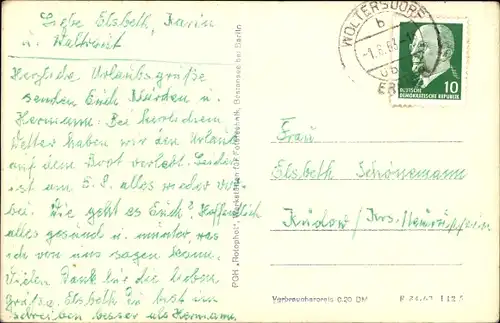 Liebe Elsbeth, Karin
u. Waltraut
Herzliche Urlaubsgrüße
senden Euch u.
Hermann. Bei herrlichem
Wetter haben wir den Urlaub
auf dem Boot verlebt. Leider
ist am 5.8. alles wieder vor-
bei. Wie geht es Euch? Hoffentlich
alles gesund u. munter, was
ich von uns sagen kann.
Vielen Dank für die lieben
Grüße. Elsbeth Du bist im
schreiben besser als Hermann.
PGH „Rotophot“, Werkstätten für Fototechnik, Bestensee bei Berlin
WOLTERSDORF
b
-1.8.63
10
DEUTSCHE
DEMOKRATISCHE REPUBLIK
Frau
Elsbeth Schönemann
Krs. Neuruppin
Verbraucherpreis 0.20 DM